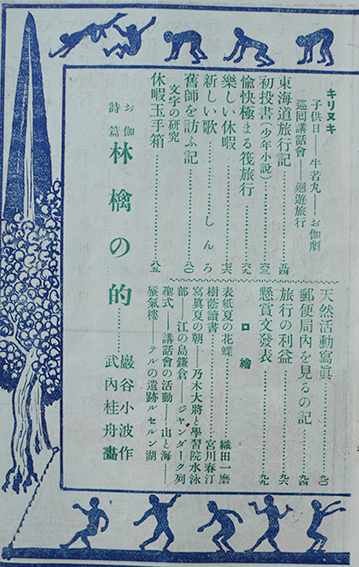 キリヌキ
子供日――牛若丸――お伽劇
巡囘講話會――廻遊旅行
東海道旅行記
初投書(少年小説)
愉快極まる筏旅行
樂しい休暇
新しい歌………しんろ
舊師を訪ふ記………八〇
文字の研究
休暇玉手箱………八五
お伽詩篇 林檎の的………巖谷小波作
武内桂舟畵
天然活動寫眞
郵便局内を見るの記
旅行の利益
懸賞文發表
口繪
表紙夏の花蝶………織田一磨
樹蔭讀書………宮川春汀
寫眞夏の朝――乃木大將と學習院水泳
部――江の島鎌倉――ジャンダーク列
聖式――講話會の活動――山と海――
蜃氣樓――テルの遺跡ルセルン湖